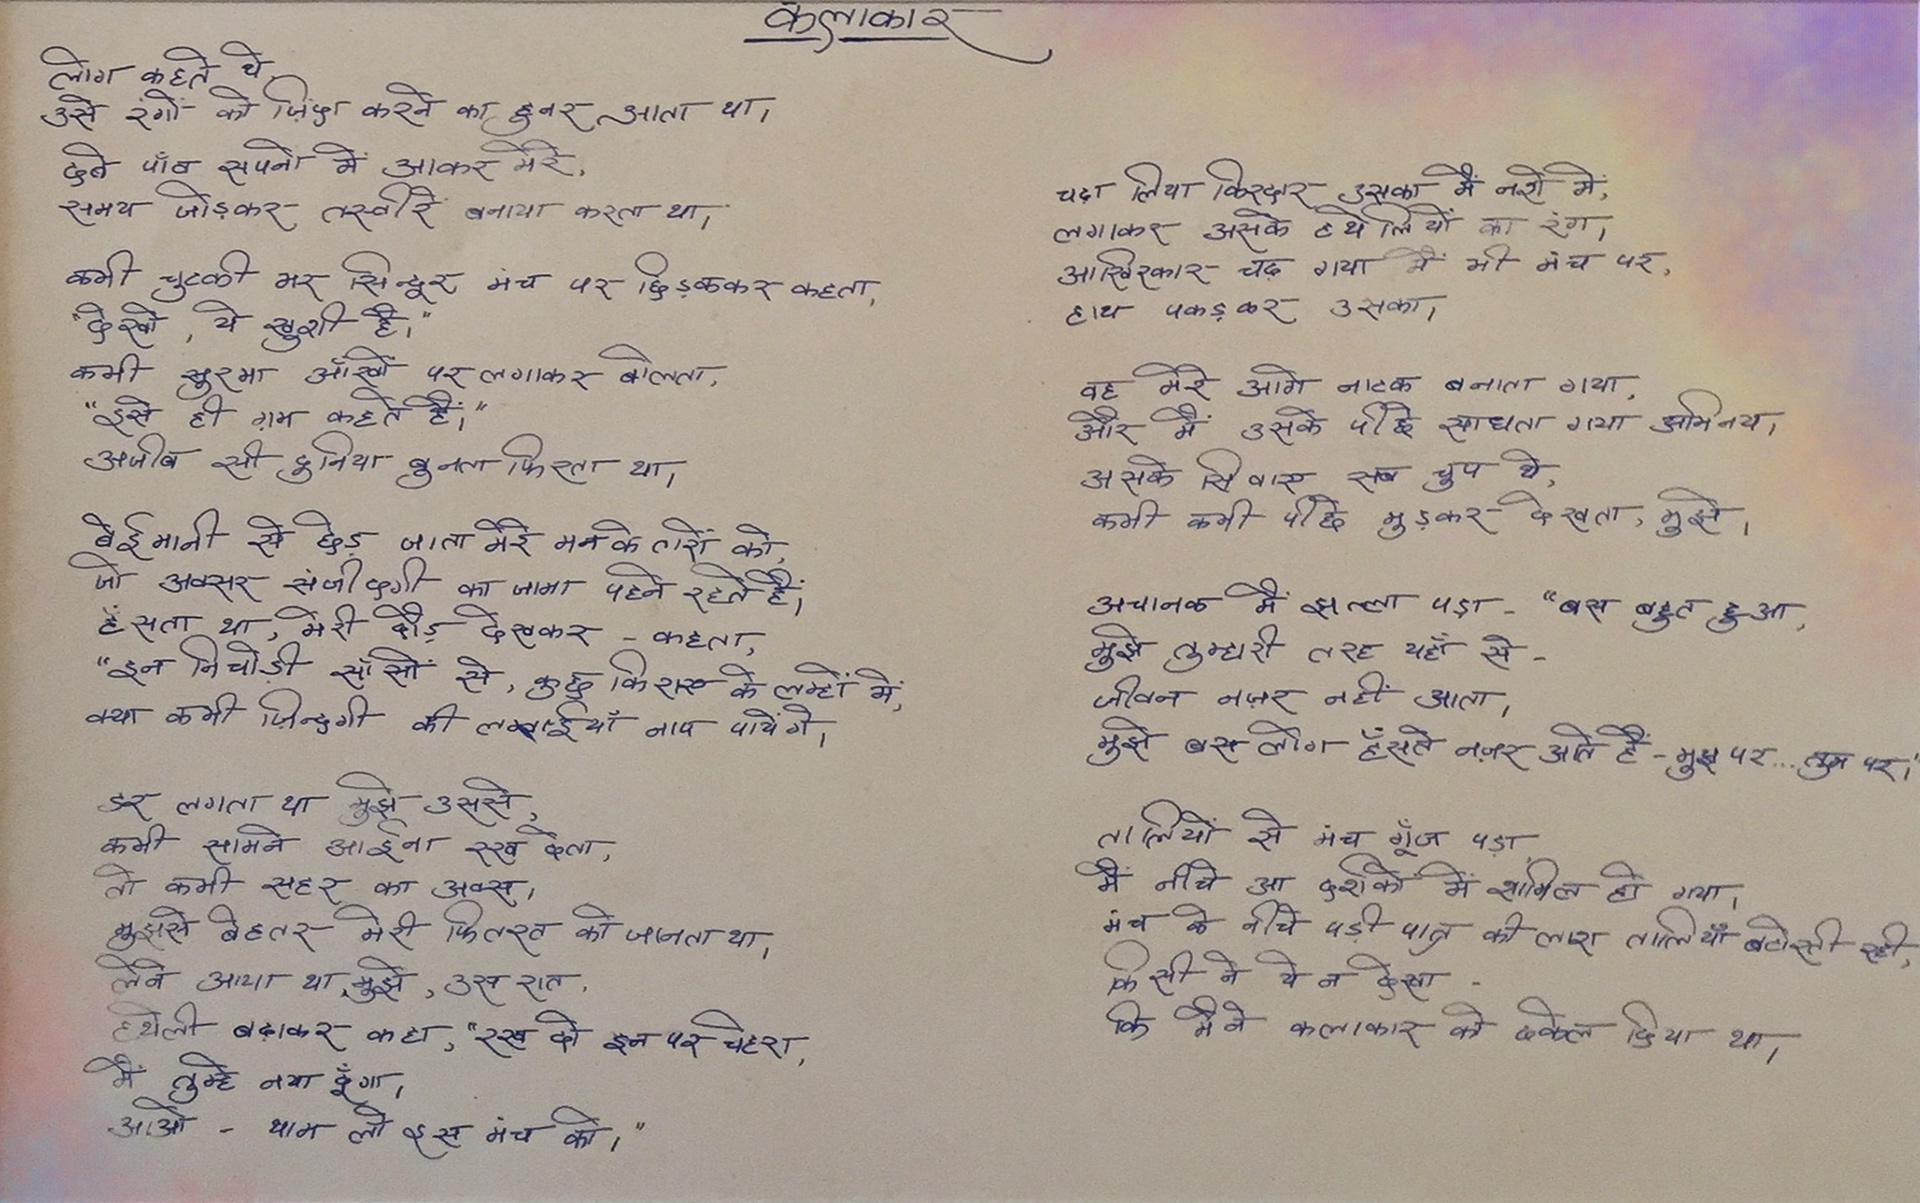 कलाकार
लोग कहते थे,
उसे रंगों को ज़िंदा करने का हुनर आता था।
दबे पाँव सपनों में आकर मेरे,
समय जोड़कर तस्वीरें बनाया करता था।
कभी चुटकी भर सिन्दूर मंच पर छिड़ककर कहता,
"देखो, ये खुशी है।"
कभी सुरमा आँखों पर लगाकर बोलता,
"इसे ही ग़म कहते हैं।"
अजीब सी दुनिया बुनता फिरता था।
बेईमानी से छेड़ जाता मेरे मन के तारों को,
जो अक्सर संजीदगी का जामा पहने रहते हैं।
हँसता था, मेरी दौड़ देखकर - कहता,
"इन निचोड़ी साँसों से, कुछ किराए के लम्हों में,
क्या कभी ज़िन्दगी की लम्बाईयाँ नाप पायेंगे।
डर लगता था मुझे उससे,
कभी सामने आईना रख देता,
तो कभी सहर का अक्स।
मुझसे बेहतर मेरी फितरत को जानता था,
लेने आया था, मुझे, उस रात,
हथेली बढ़ाकर कहा, "रख दो इन पर चेहरा,
मैं तुम्हे नया दूँगा।
आओ - थाम लो इस मंच को।"
चढ़ा लिया किरदार उसका मैं नशे में,
लगाकर उसके हथेलियों का रंग।
आखिरकार चढ़ गया मैं भी मंच पर,
हाथ पकड़कर उसका।
वह मेरे आगे नाटक बनाता गया,
और मैं उसके पीछे साधता गया अभिनय।
उसके सिवाए सब चुप थे,
कभी कभी पीछे मुड़कर देखता, मुझे।
अचानक मैं झल्ला पड़ा - "बस बहुत हुआ,
मुझे तुम्हारी तरह यहाँ से -
जीवन नज़र नहीं आता,
मुझे बस लोग हँसते नज़र आते हैं - मुझ पर... तुम पर।"
तालियों से मंच गूँज पड़ा,
मैं नीचे आ दर्शकों में शामिल हो गया।
मंच के नीचे पड़ी पात्र की लाश तालियाँ बटोरती रही,
किसी ने ये न देखा -
कि मैंने कलाकार को ढकेल दिया था।